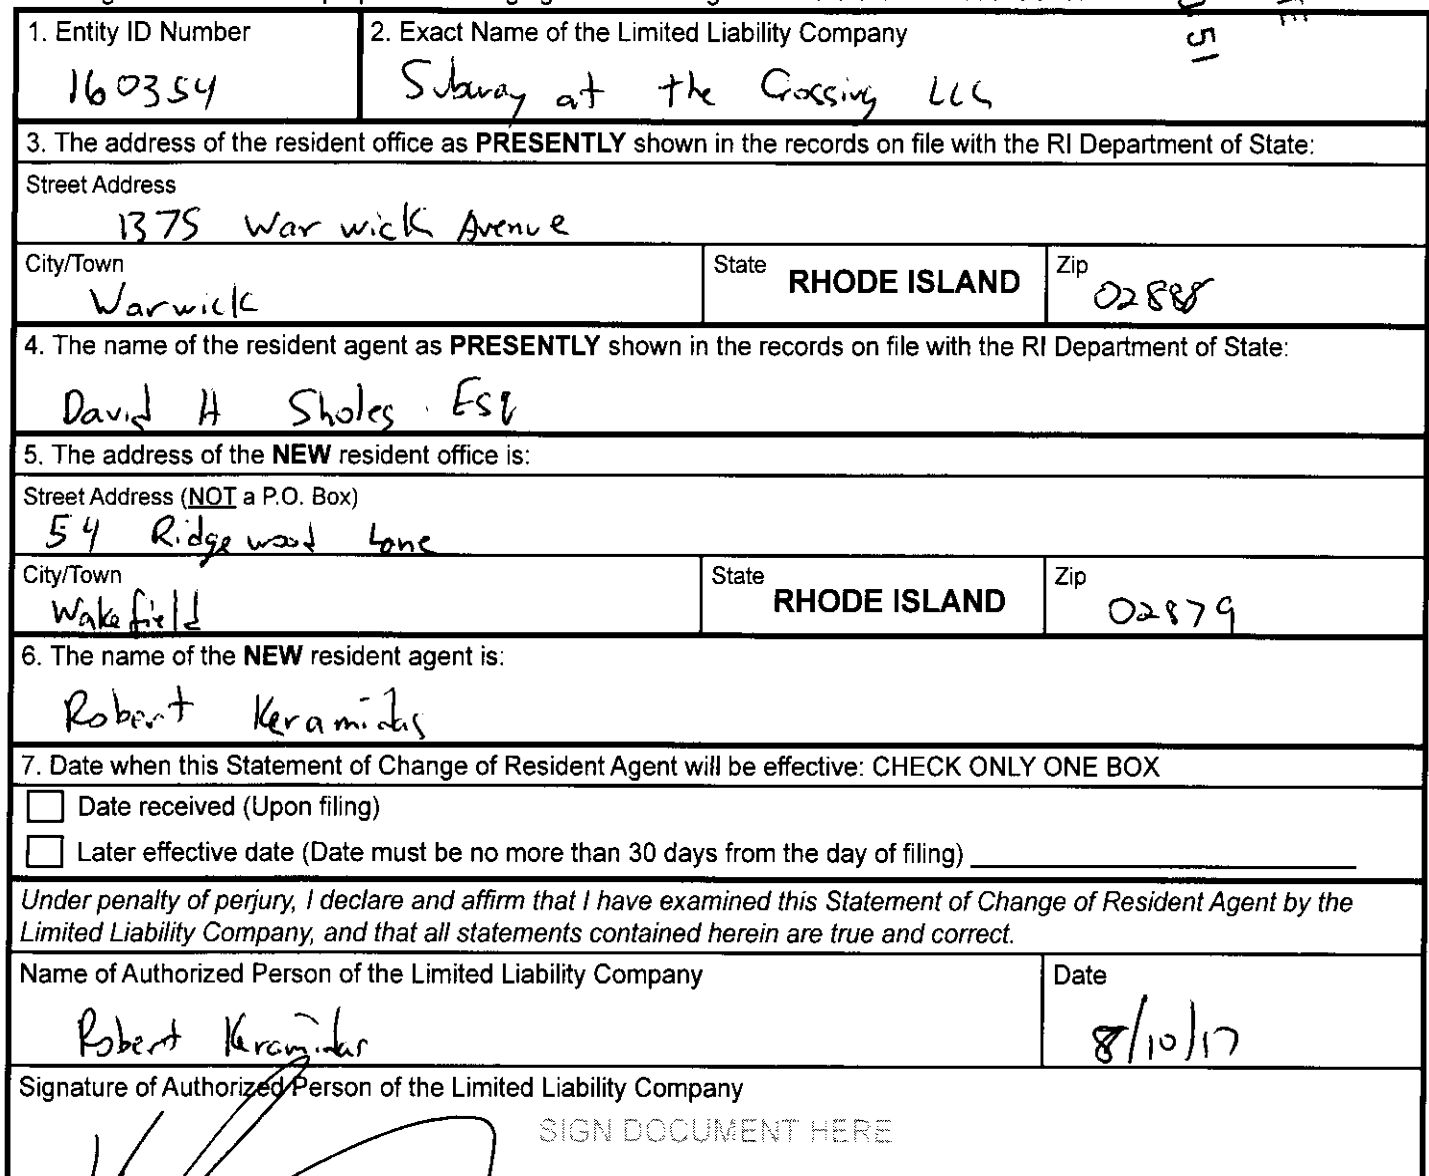 1. Entity ID Number
160354
2. Exact Name of the Limited Liability Company
Subway at the Crossing LLC
3. The address of the resident office as PRESENTLY shown in the records on file with the RI Department of State:
Street Address
1375 Warwick Avenue
City/Town
Warwick
State RHODE ISLAND
Zip
02888
4. The name of the resident agent as PRESENTLY shown in the records on file with the RI Department of State:
David H Sholes. Esq
5. The address of the NEW resident office is:
Street Address (NOT a P.O. Box)
54 Ridgewood Lane
City/Town
Wakefield
State RHODE ISLAND
Zip
02879
6. The name of the NEW resident agent is:
Robert Keramidas
7. Date when this Statement of Change of Resident Agent will be effective: CHECK ONLY ONE BOX
Date received (Upon filing)
Later effective date (Date must be no more than 30 days from the day of filing)
Under penalty of perjury, I declare and affirm that I have examined this Statement of Change of Resident Agent by the
Limited Liability Company, and that all statements contained herein are true and correct.
Name of Authorized Person of the Limited Liability Company
Robert Keramidas
Date
8/10/17
Signature of Authorized Person of the Limited Liability Company
SIGN DOCUMENT HERE